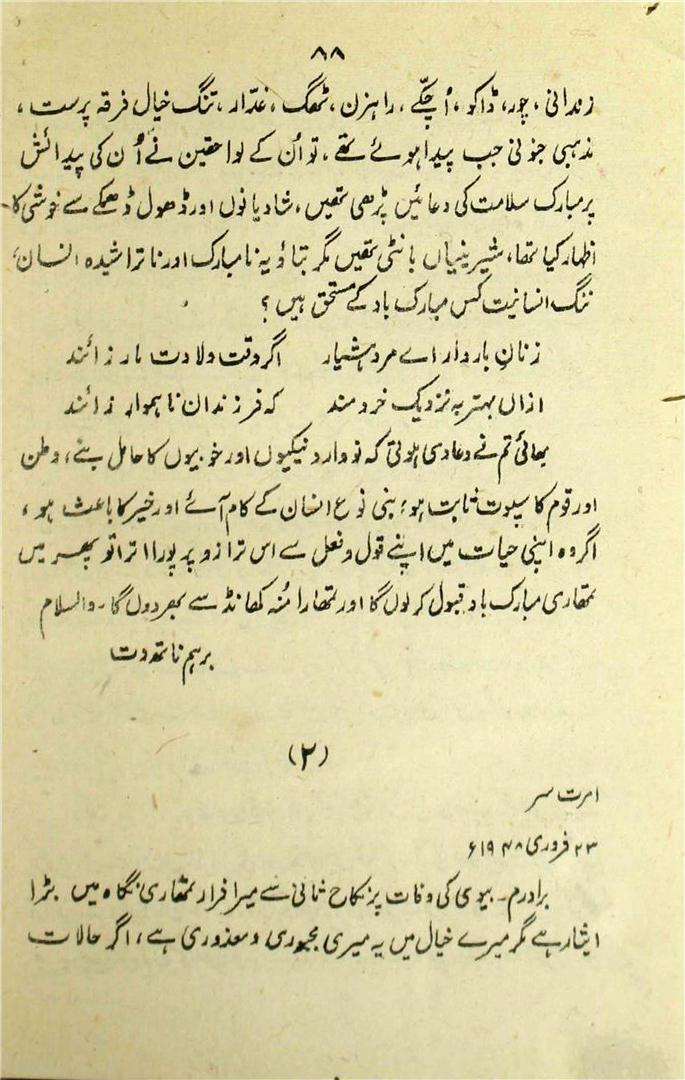 ۸۸
زندانی، چور، ڈاکو، اُچکّے، راہزن، ٹھگ، غدّار، تنگ خیال فرقہ پرست،
مذہبی جنونی جب پیدا ہوئے تھے، تو اُن کے لواحقین نے اُن کی پیدائش
پر مبارک سلامت کی دعائیں پڑھی تھیں، شادیانوں اور ڈھول ڈھمکے سے خوشی کا
اظہار کیا تھا، شیرینیاں بانٹی تھیں مگر بتاؤ یہ نا مبارک اور نا تراشیدہ انسان،
ننگ انسانیت کس مبارک باد کے مستحق ہیں؟
زنانِ باردار اے مرد ہشیار اگر وقت ولادت مار زائند
ازاں بہتر بہ نزدیک خرد مند کہ فرزندان ناہموار زائند
بھائی تم نے دعا دی ہوتی کہ نو وارد نیکیوں اور خوبیوں کا حامل بنے، وطن
اور قوم کا سپوت ثابت ہو، بنی نوع انسان کے کام آئے اور خیر کا باعث ہو،
اگر وہ اپنی حیات میں اپنے قول و فعل سے اس ترازو پر پورا اترا تو پھر میں
تمھاری مبارک باد قبول کر لوں گا اور تمھارا مُنہ کھانڈ سے بھر دوں گا۔ والسلام
برہم ناتھ دت
(۲)
امرت سر
۲۳ فروری ۱۹۴۸ء
برادرم۔ بیوی کی وفات پر نکاح ثانی سے میرا فرار تمھاری نگاہ میں بڑا
ایثار ہے مگر میرے خیال میں یہ میری مجبوری و معذوری ہے، اگر حالات